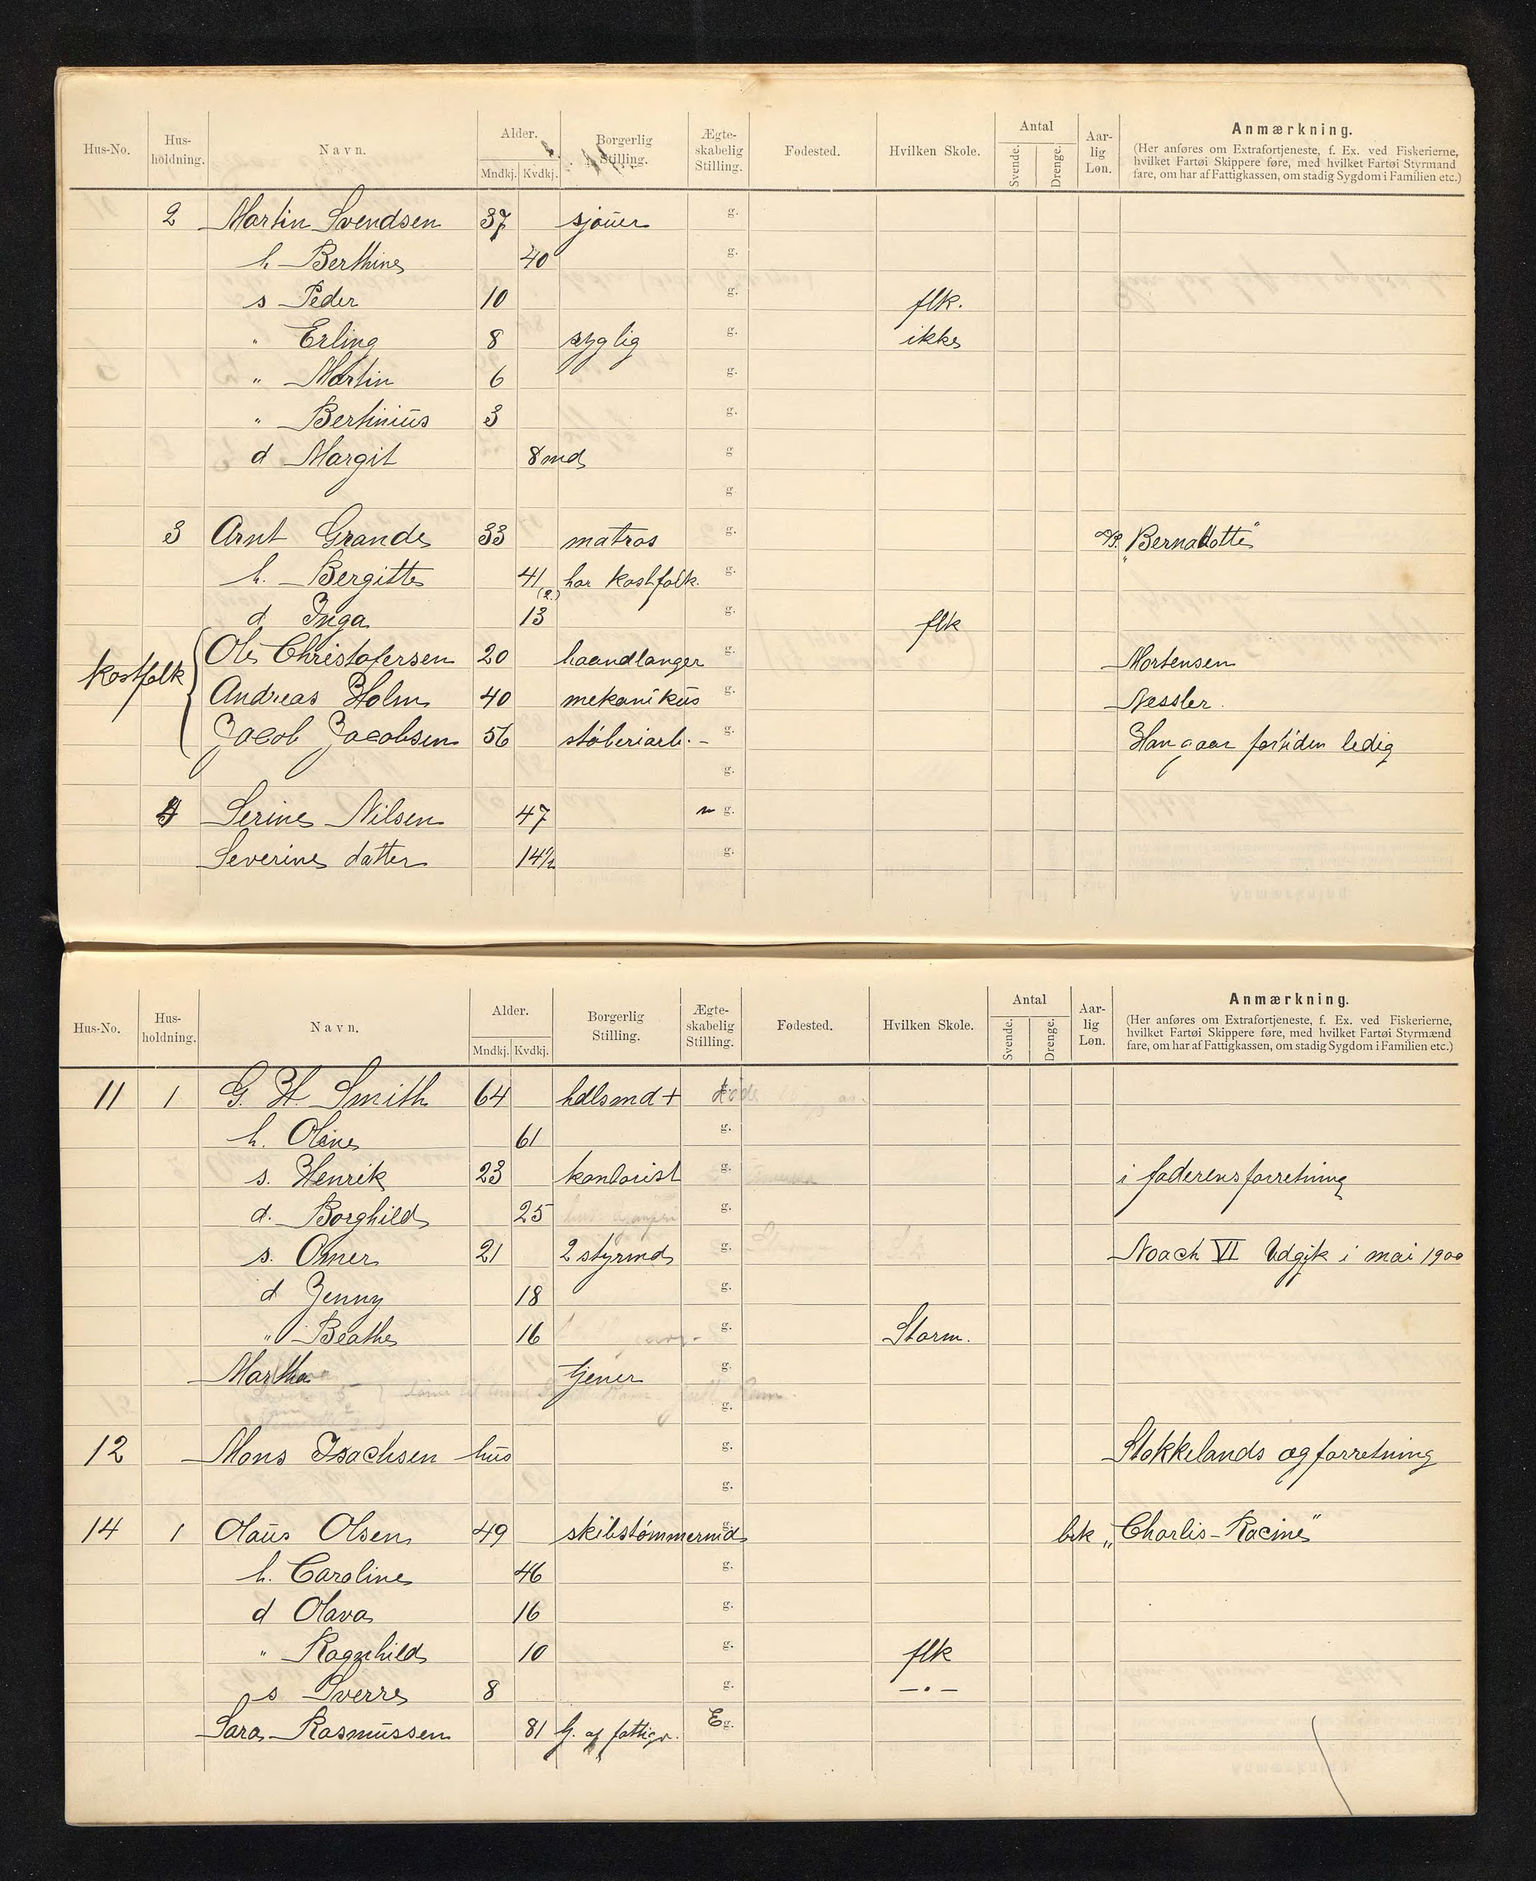 Hus-No. Hus-holdning. Navn. Alder. Mndkj. Kvdkj. Borgerlig Stilling. Ægte-skabelig Stilling. Fødested. Hvilken Skole. Antal Svende. Drenge. Aar-lig Løn. Anmærkning.
(Her anføres om Extrafortjeneste, f. Ex. ved Fiskerierne, hvilket Fartøi Skippere føre, med hvilket Fartøi Styrmænd fare, om har af Fattigkassen, om stadig Sygdom i Familien etc.)
2 Martin Svendsen 37 sjouer g.
h. Berthine 40 g.
s Peder 10 g. flk.
" Erling 8 syglig g. ikke
" Martin 6 g.
" Bertinius 3 g.
d Margit 8 md g.
g
3 Arnt Grande 33 matros g. "Bernadotte"
h. Bergitte 41 har kostfolk. g.
d Inga 13 g. flk
kostfolk { Ole Christofersen 20 haandlanger g. Mortensen
Andreas Holm 40 mekanikus g. Nessler.
Jacob Jacobsen 56 støberiarb. - g. Han gaar fortiden ledig
g.
4 Serine Nilsen 47 g.
Severine datter 14½ g.
Hus-No. Hus-holdning. Navn. Alder. Mndkj. Kvdkj. Borgerlig Stilling. Ægte-skabelig Stilling. Fødested. Hvilken Skole. Antal Svende. Drenge. Aar-lig Løn. Anmærkning.
(Her anføres om Extrafortjeneste, f. Ex. ved Fiskerierne, hvilket Fartøi Skippere føre, med hvilket Fartøi Styrmænd fare, om har af Fattigkassen, om stadig Sygdom i Familien etc.)
11 1 G. H. Smith 64 hdlsmd +
h. Oline 61 g.
s. Henrik 23 kontorist g. i faderens forretning
d. Borghild 25 g.
s. Omer 21 2 styrmd g. Noach VI Udgik i mai 1900
d Jenny 18 g.
" Beathe 16 g. Storm.
Martha tjener g.
g.
12 Mons Isachsen hus g. Stokkelands og forretning
g.
14 1 Olaus Olsen 49 skibstømmermd g. brk "Charlis-Racine"
h. Caroline 46 g.
d Olava 16 g.
" Ragnhild 10 g. flk
s Sverre 8 g. -"-
Sara Rasmussen 81 h. af fattigv. E g.